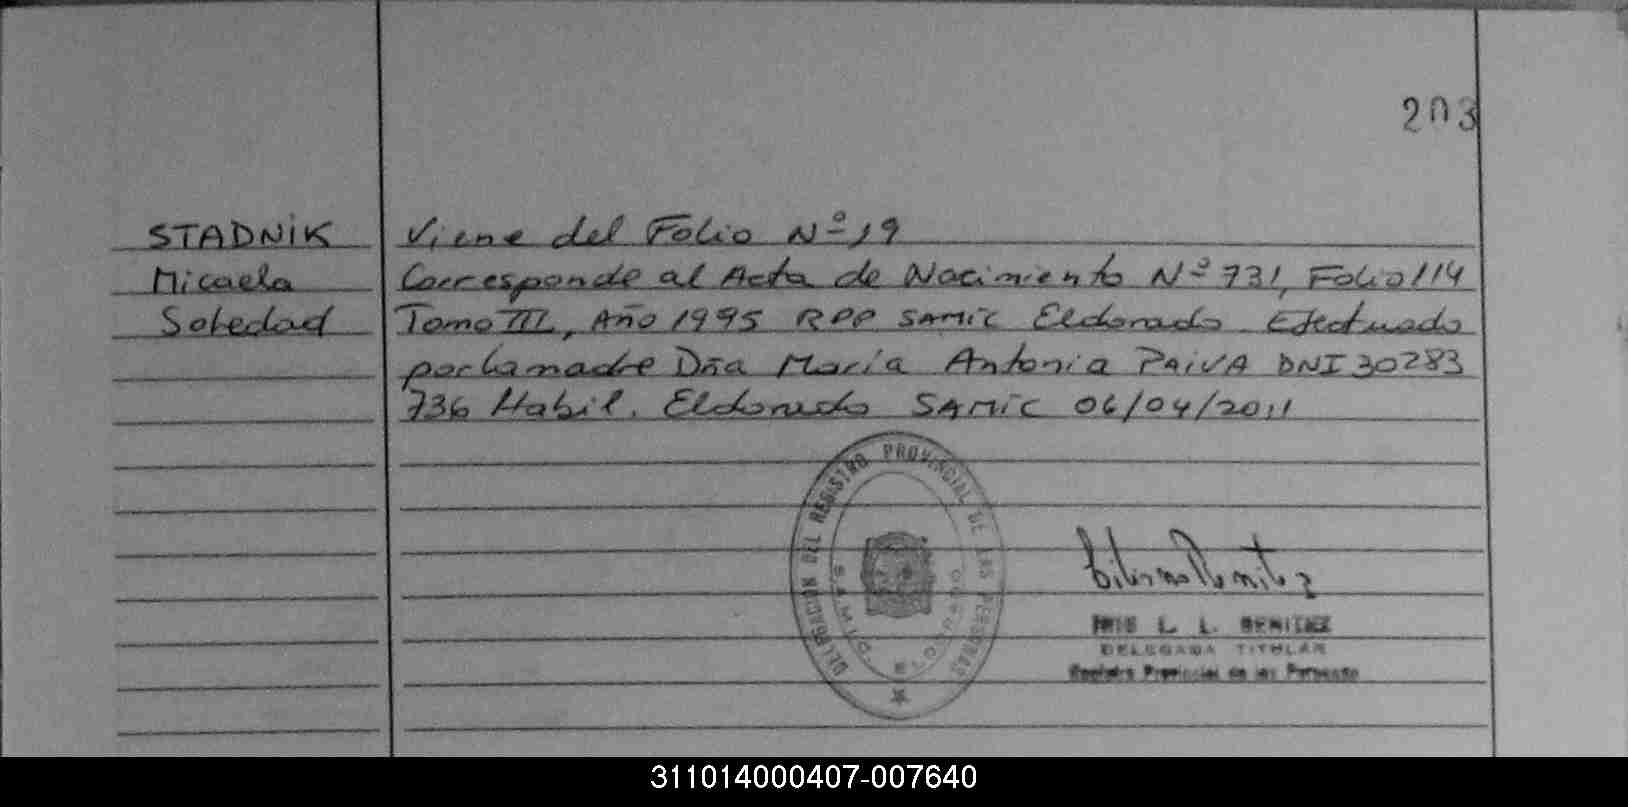 203
STADNIK
Micaela
Soledad
Viene del Folio Nº 19
Corresponde al Acta de Nacimiento Nº 731, Folio 114
Tomo III, Año 1995 RPP SAMIC Eldorado Efectuado
por la madre Dña María Antonia PAIVA DNI 30283
736 Habil. Eldorado SAMIC 06/04/2011
DELEGACION DEL REGISTRO PROVINCIAL DE LAS PERSONAS
S.A.M.I.C.
ELDORADO
L. L. BENITEZ
DELEGADA TITULAR
Registro Provincial de las Personas
311014000407-007640